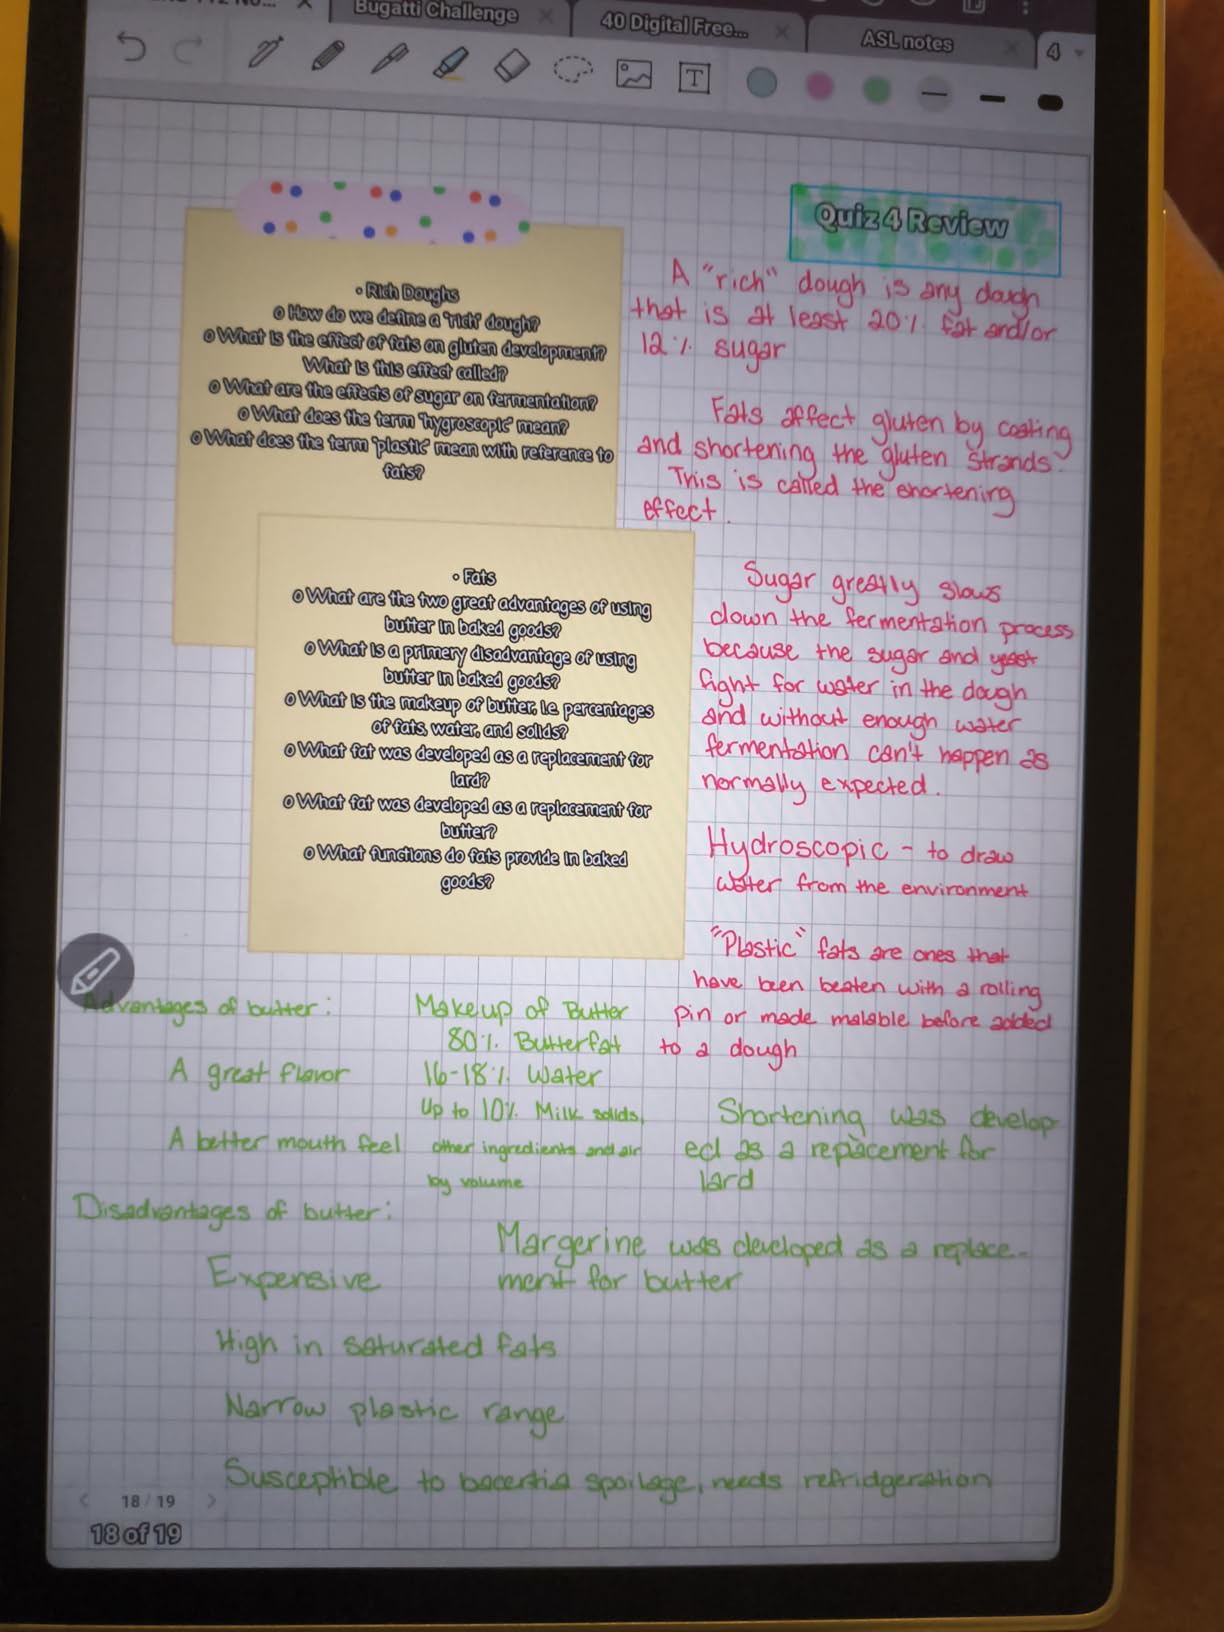 Bugatti Challenge
40 Digital Free...
ASL notes
4
T
Quiz 4 Review
• Rich Doughs
o How do we define a 'rich' dough?
o What is the effect of fats on gluten development?
What is this effect called?
o What are the effects of sugar on fermentation?
o What does the term 'hygroscopic' mean?
o What does the term 'plastic' mean with reference to
fats?
A "rich" dough is any dough
that is at least 20% fat and/or
12% sugar
Fats affect gluten by coating
and shortening the gluten strands.
This is called the shortening
effect.
• Fats
o What are the two great advantages of using
butter in baked goods?
o What is a primery disadvantage of using
butter in baked goods?
o What is the makeup of butter, i.e. percentages
of fats, water, and solids?
o What fat was developed as a replacement for
lard?
o What fat was developed as a replacement for
butter?
o What functions do fats provide in baked
goods?
Sugar greatly slows
down the fermentation process
because the sugar and yeast
fight for water in the dough
and without enough water
fermentation can't happen as
normally expected.
Hydroscopic - to draw
water from the environment
"Plastic" fats are ones that
have been beaten with a rolling
pin or made malable before added
to a dough
Advantages of butter:
A great flavor
A better mouth feel
Makeup of Butter
80% Butterfat
16-18% Water
Up to 10% Milk solids,
other ingredients and air
by volume
Shortening was develop
ed as a replacement for
lard
Disadvantages of butter:
Expensive
High in saturated fats
Narrow plastic range
Susceptible to bacertia spoilage, needs refridgeration
Margerine was developed as a replace-
ment for butter
18 / 19
18 of 19